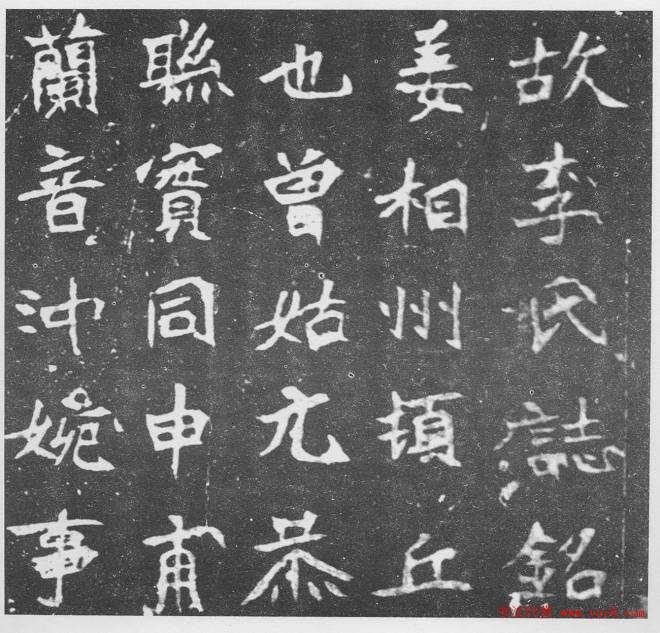 故李氏誌銘
姜相州頓丘
也曾姑亢恭
聮實同申甫
蘭音沖婉事